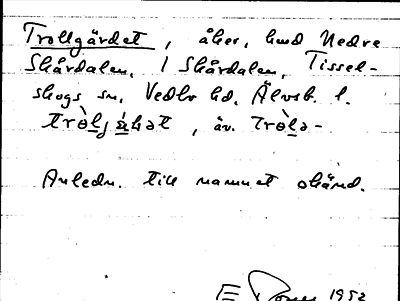 Trollgärdet, åker, hmd Nedre
Skårdalen, / Skårdalen, Tissel-
skogs sn, Vedbo hd, Älvsb. l.
, äv. Trò̀lə-
Anledn. till namnet okänd.
E 1952